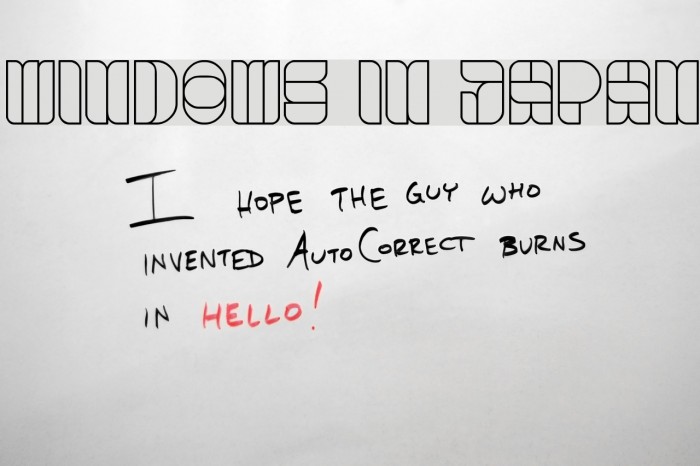 WINDOWS IN JAPAN
I HOPE THE GUY WHO
INVENTED AUTOCORRECT BURNS
IN HELLO!